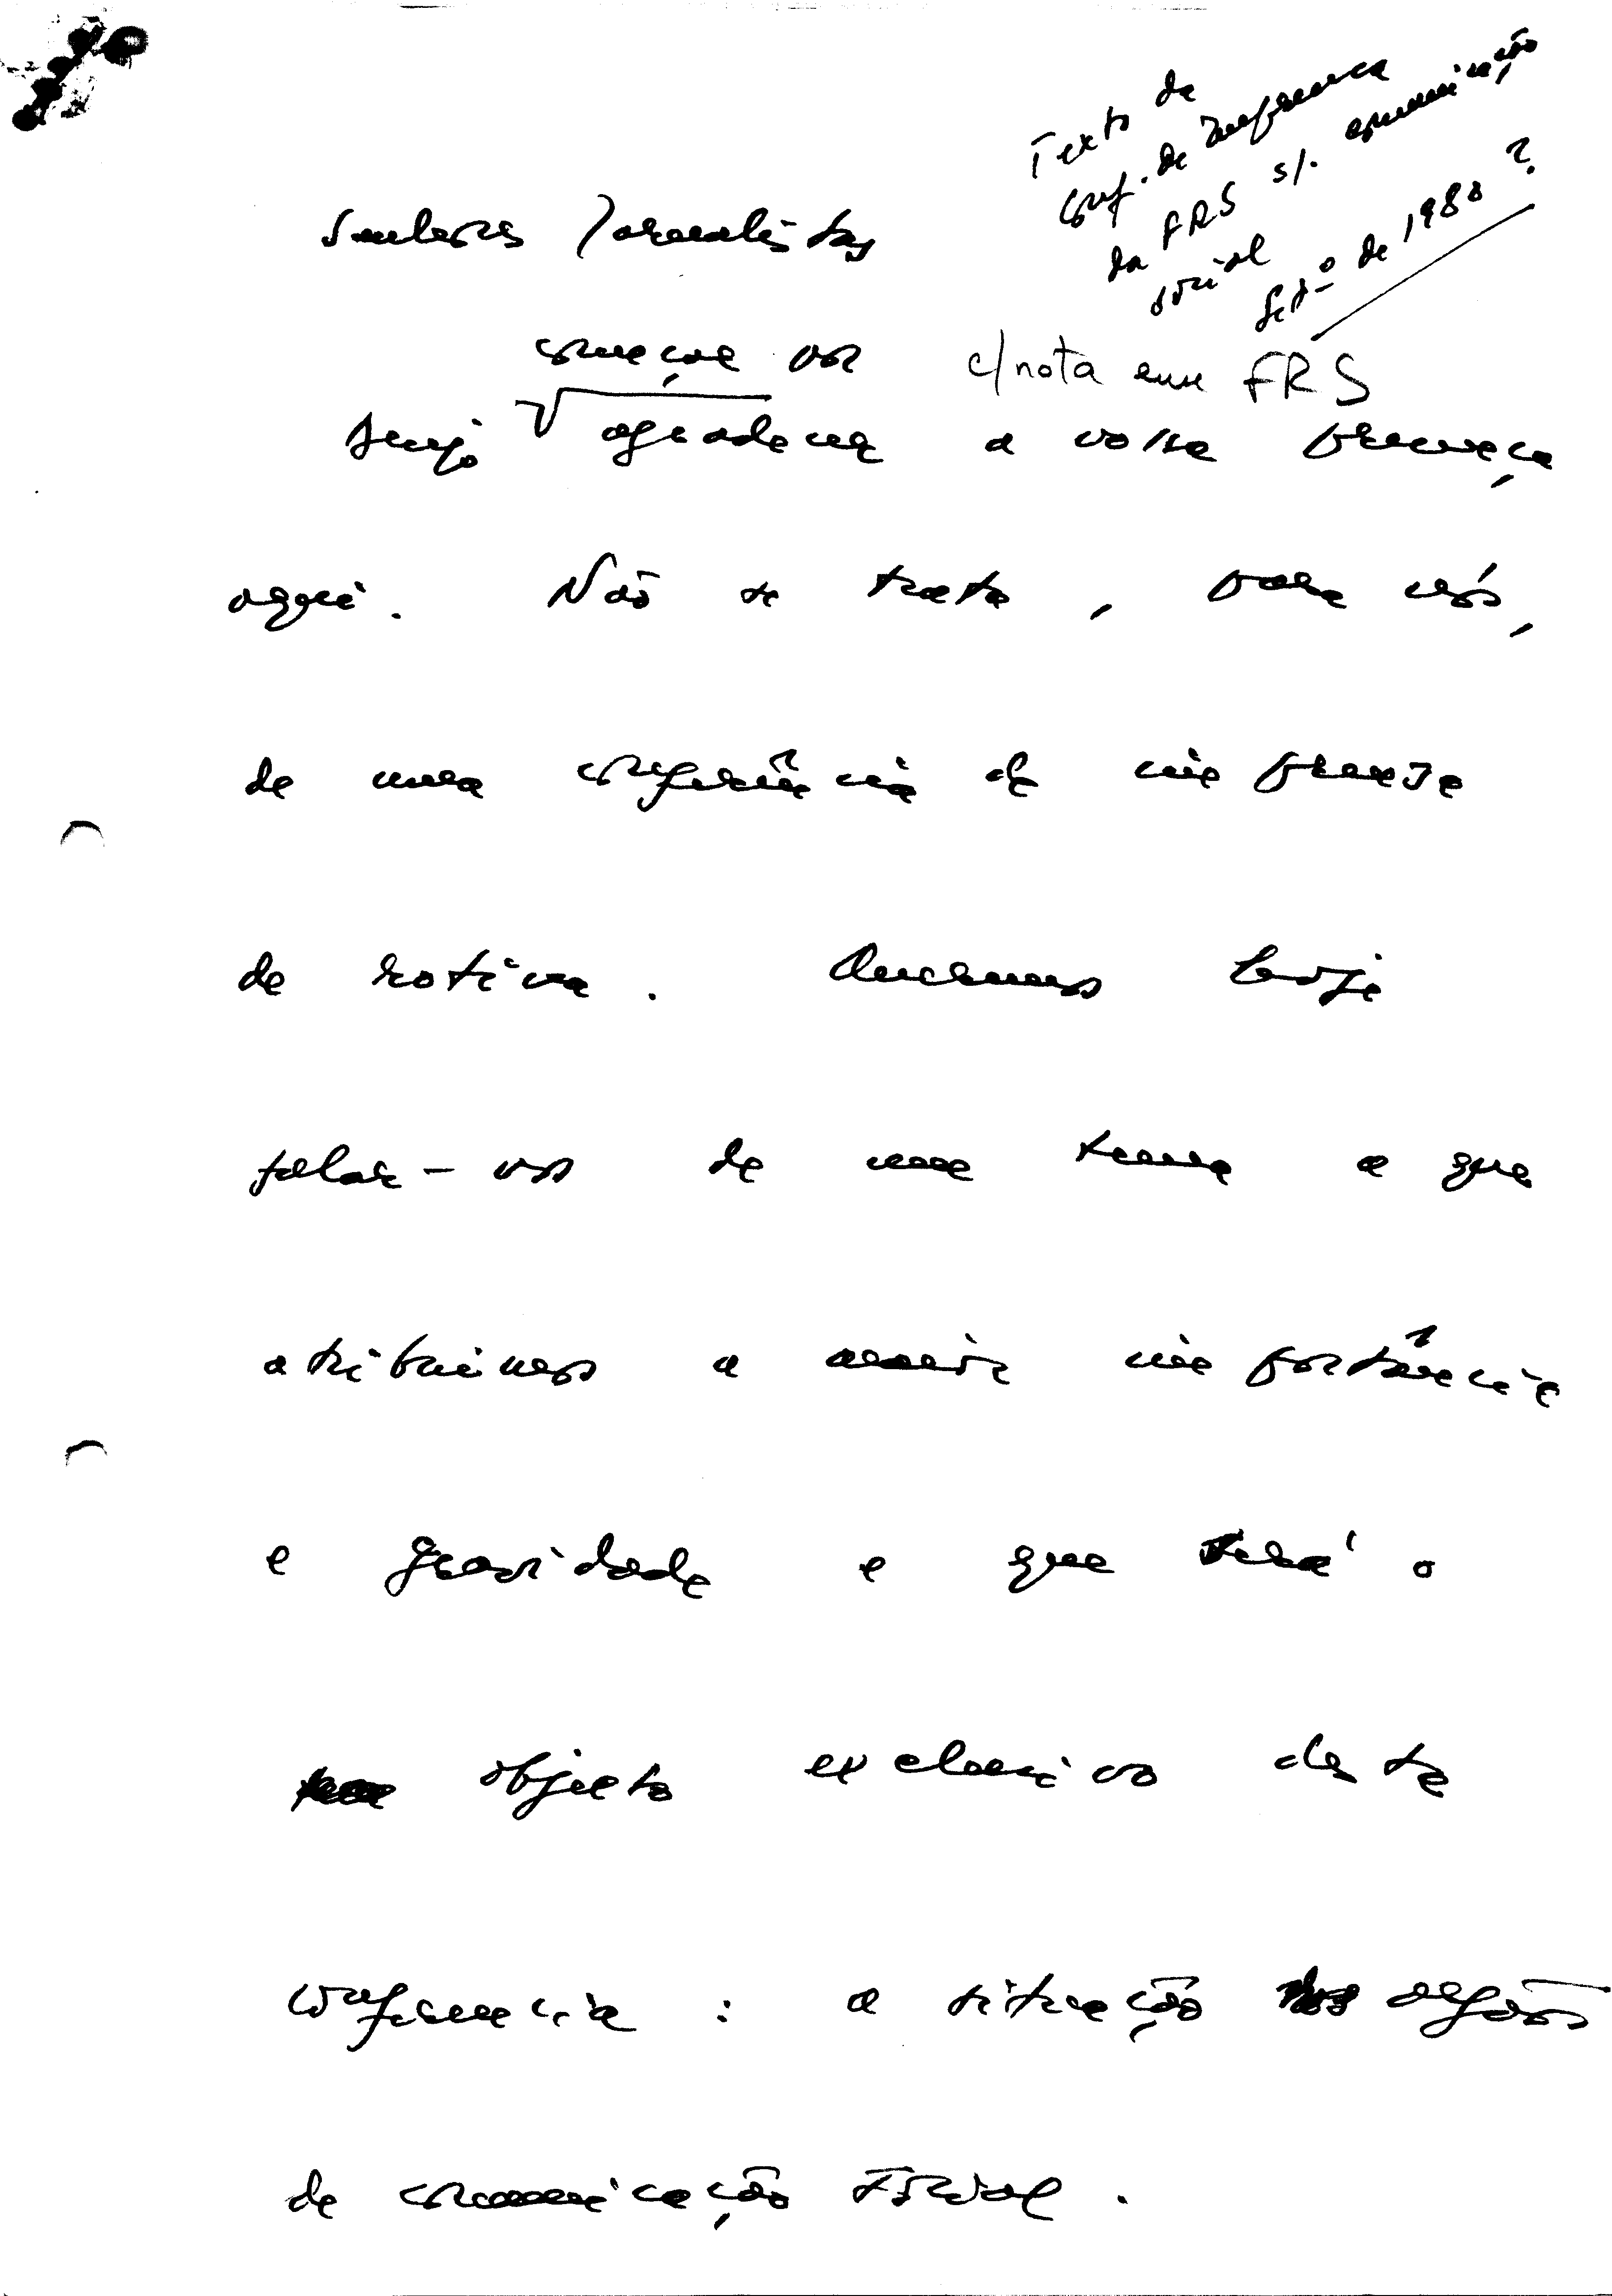 Texto da
Conf. de Imprensa
da FRS s/. comunicação
social
Setº de 1980?
Senhores Jornalistas
começar por
c/ nota em FRS
Desejo agradecer a vossa presença
aqui. Não se trata, para nós,
de uma conferência de imprensa
de rotina. Queremos hoje
falar-vos de um tema a que
atribuimos a maior importância
e gravidade e que será o
objecto exclusivo desta
conferencia: a situação dos orgãos
de comunicação social.